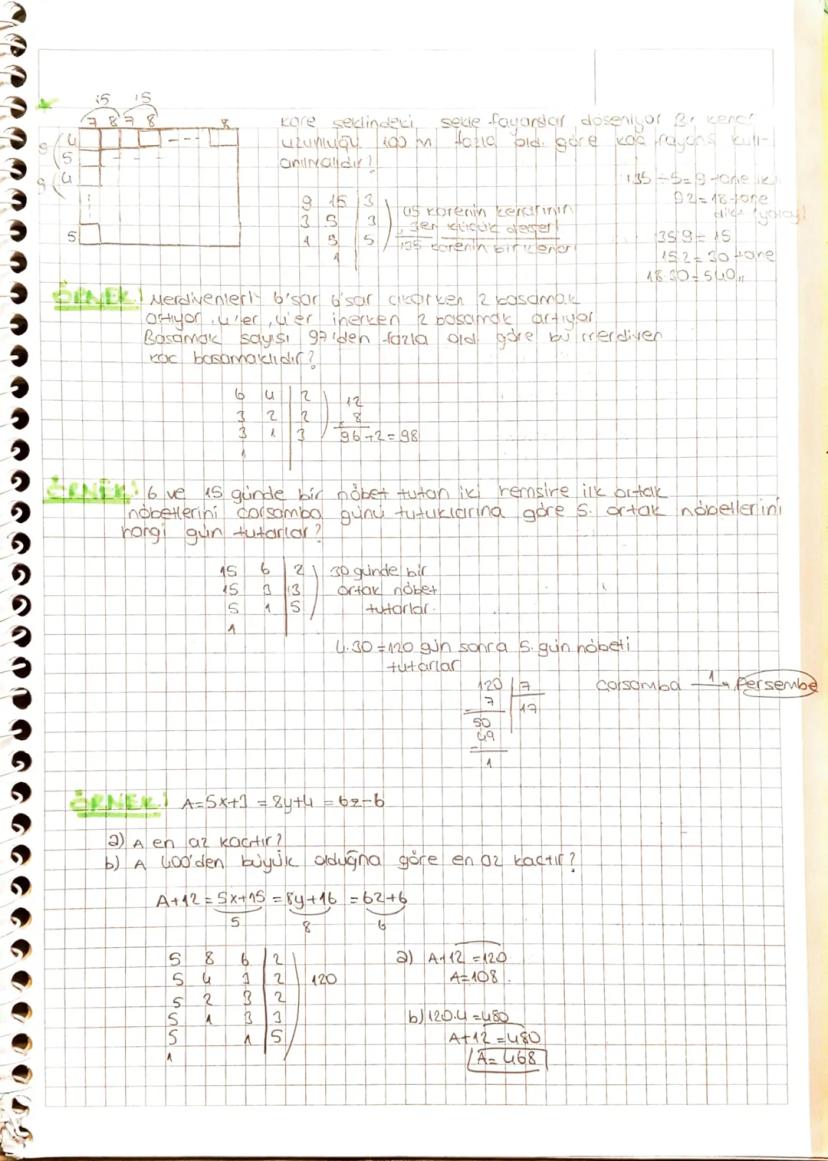 15 15
7 8 7 8 8
9 4
5
9 4
5
kare şeklindeki şekle fayanslar döşeniyor Bir kenar
uzunluğu 100 m fazla old. göre kaç fayans kull-
anılmalıdır?
9 15 | 3
3 5 | 3
1 5 | 5
1
45 karenin kenarının
en küçük değeri
135 karenin bir kenarı
135
9.2=18 tane
135 9= 15
15.2= 30 tane
18.30=540
ÖRNEK: Merdivenleri 6'şar 6'şar çıkarken 2 basamak
artıyor, 4'er, 4'er inerken 2 basamak artıyor
Basamak sayısı 97'den fazla old. göre bu merdiven
kaç basamaklıdır?
6 4 | 2
3 2 | 2
3 1 | 3
1
12
x 8
96+2=98
ÖRNEK: 6 ve 15 günde bir nöbet tutan iki hemşire ilk ortak
nöbetlerini çarşamba günü tutuklarına göre 5. ortak nöbetlerini
hangi gün tutarlar?
15 6 | 2
15 3 | 3
5 1 | 5
1
30 günde bir
ortak nöbet
tutarlar.
4.30=120 gün sonra 5. gün nöbeti
tutarlar
120 | 7
7 | 17
50
49
1
çarşamba 1 Perşembe
ÖRNEK: A=5x+3 = 8y+4 = 6z-6
a) A en az kaçtır?
b) A 400'den büyük olduğna göre en az kaçtır?
A+12 = 5x+15 = 8y+16 = 6z+6
5 8 6
5 8 6 | 2
5 4 3 | 2
5 2 3 | 2
5 1 3 | 3
5 1 | 5
1
120
a) A+12 =120
A=108.
b) 120.4 =480
A+12 =480
A= 468